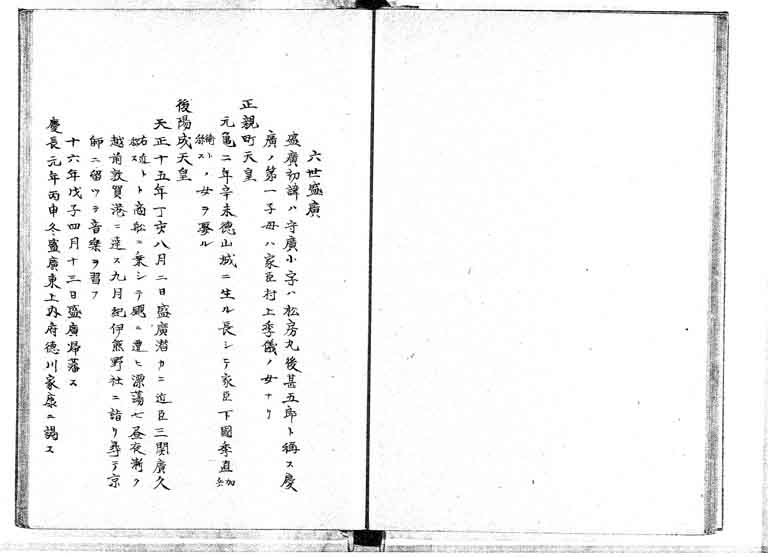 六世盛廣
盛廣初諱ハ守廣小字ハ松房丸後甚五郎ト稱ス慶
廣ノ第一子母ハ家臣村上季儀ノ女ナリ
正親町天皇
元亀二年辛未徳山城ニ生ル長シテ家臣下國季直
ノ女ヲ娶ル
後陽成天皇
天正十五年丁亥八月二日盛廣潜カニ近臣三関廣久
ト商舩ニ乗シテ颶ニ遭ヒ漂蕩七昼夜漸ク
越前敦賀港ニ達ス九月紀伊熊野社ニ詣リ尋テ京
師ニ留ツテ音樂ヲ習フ
十六年戊子四月十三日盛廣帰藩ス
慶長元年丙申冬盛廣東上内府徳川家康ニ謁ス